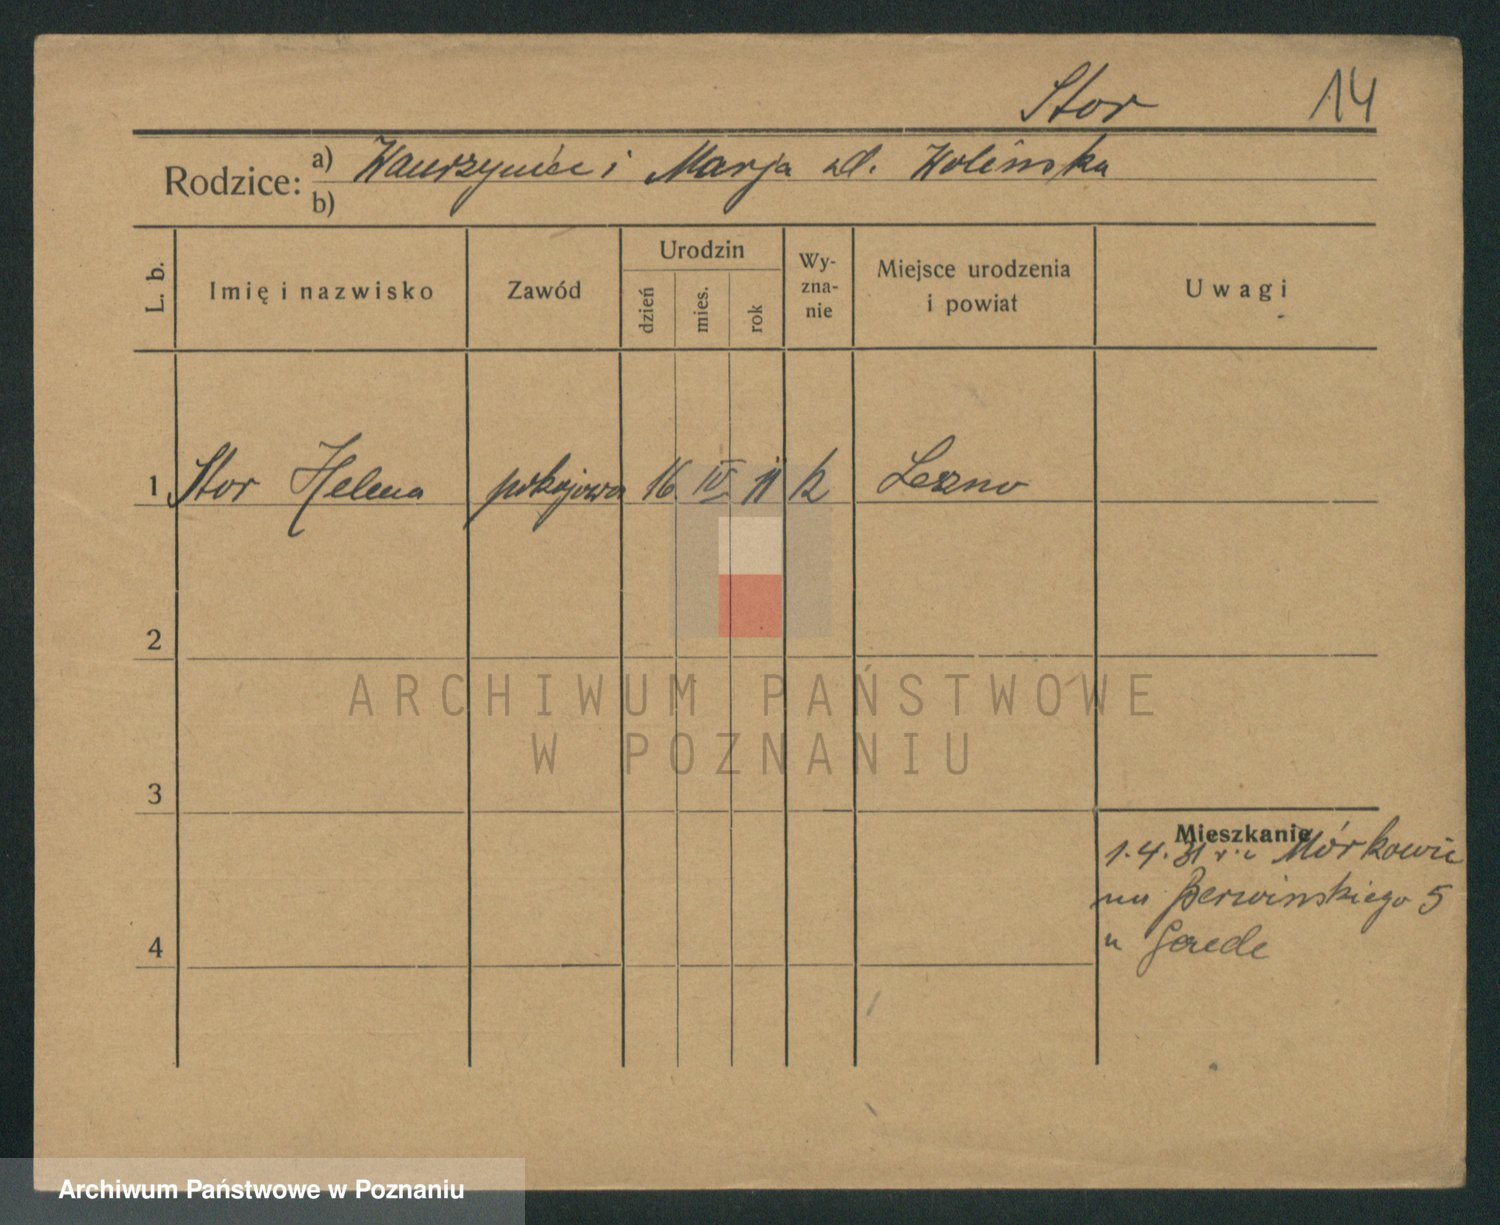 Stor 14
Rodzice: a) Wawrzyniec i Marja zd. Wolińska
b)
L. b. Imię i nazwisko Zawód Urodzin dzień mies. rok Wy-zna-nie Miejsce urodzenia i powiat Uwagi
1 Stor Helena pokojowa 16 IV 11 k Leszno
2
ARCHIWUM PAŃSTWOWE
W POZNANIU
3
Mieszkanie
1.4.31 Mórkowic
na Berwińskiego 5
u Gaede
4
Archiwum Państwowe w Poznaniu